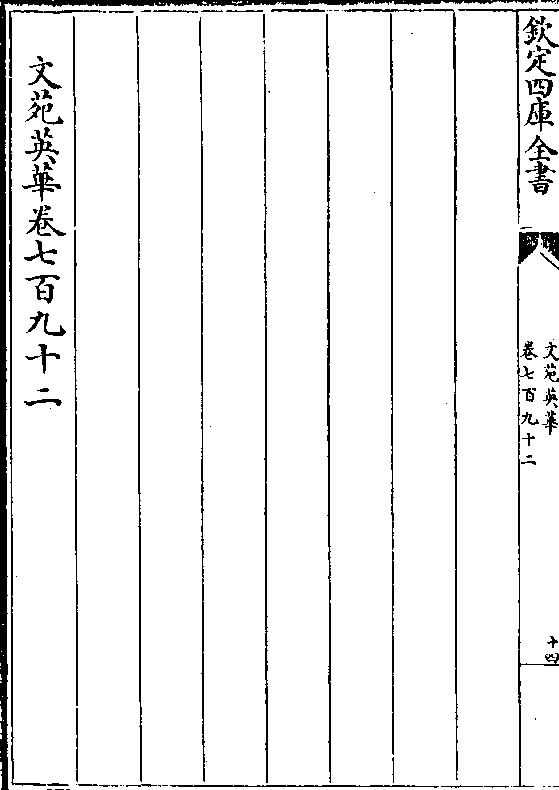 欽定四庫全書
文苑英華
卷七百九十二
十四
文苑英華卷七百九十二